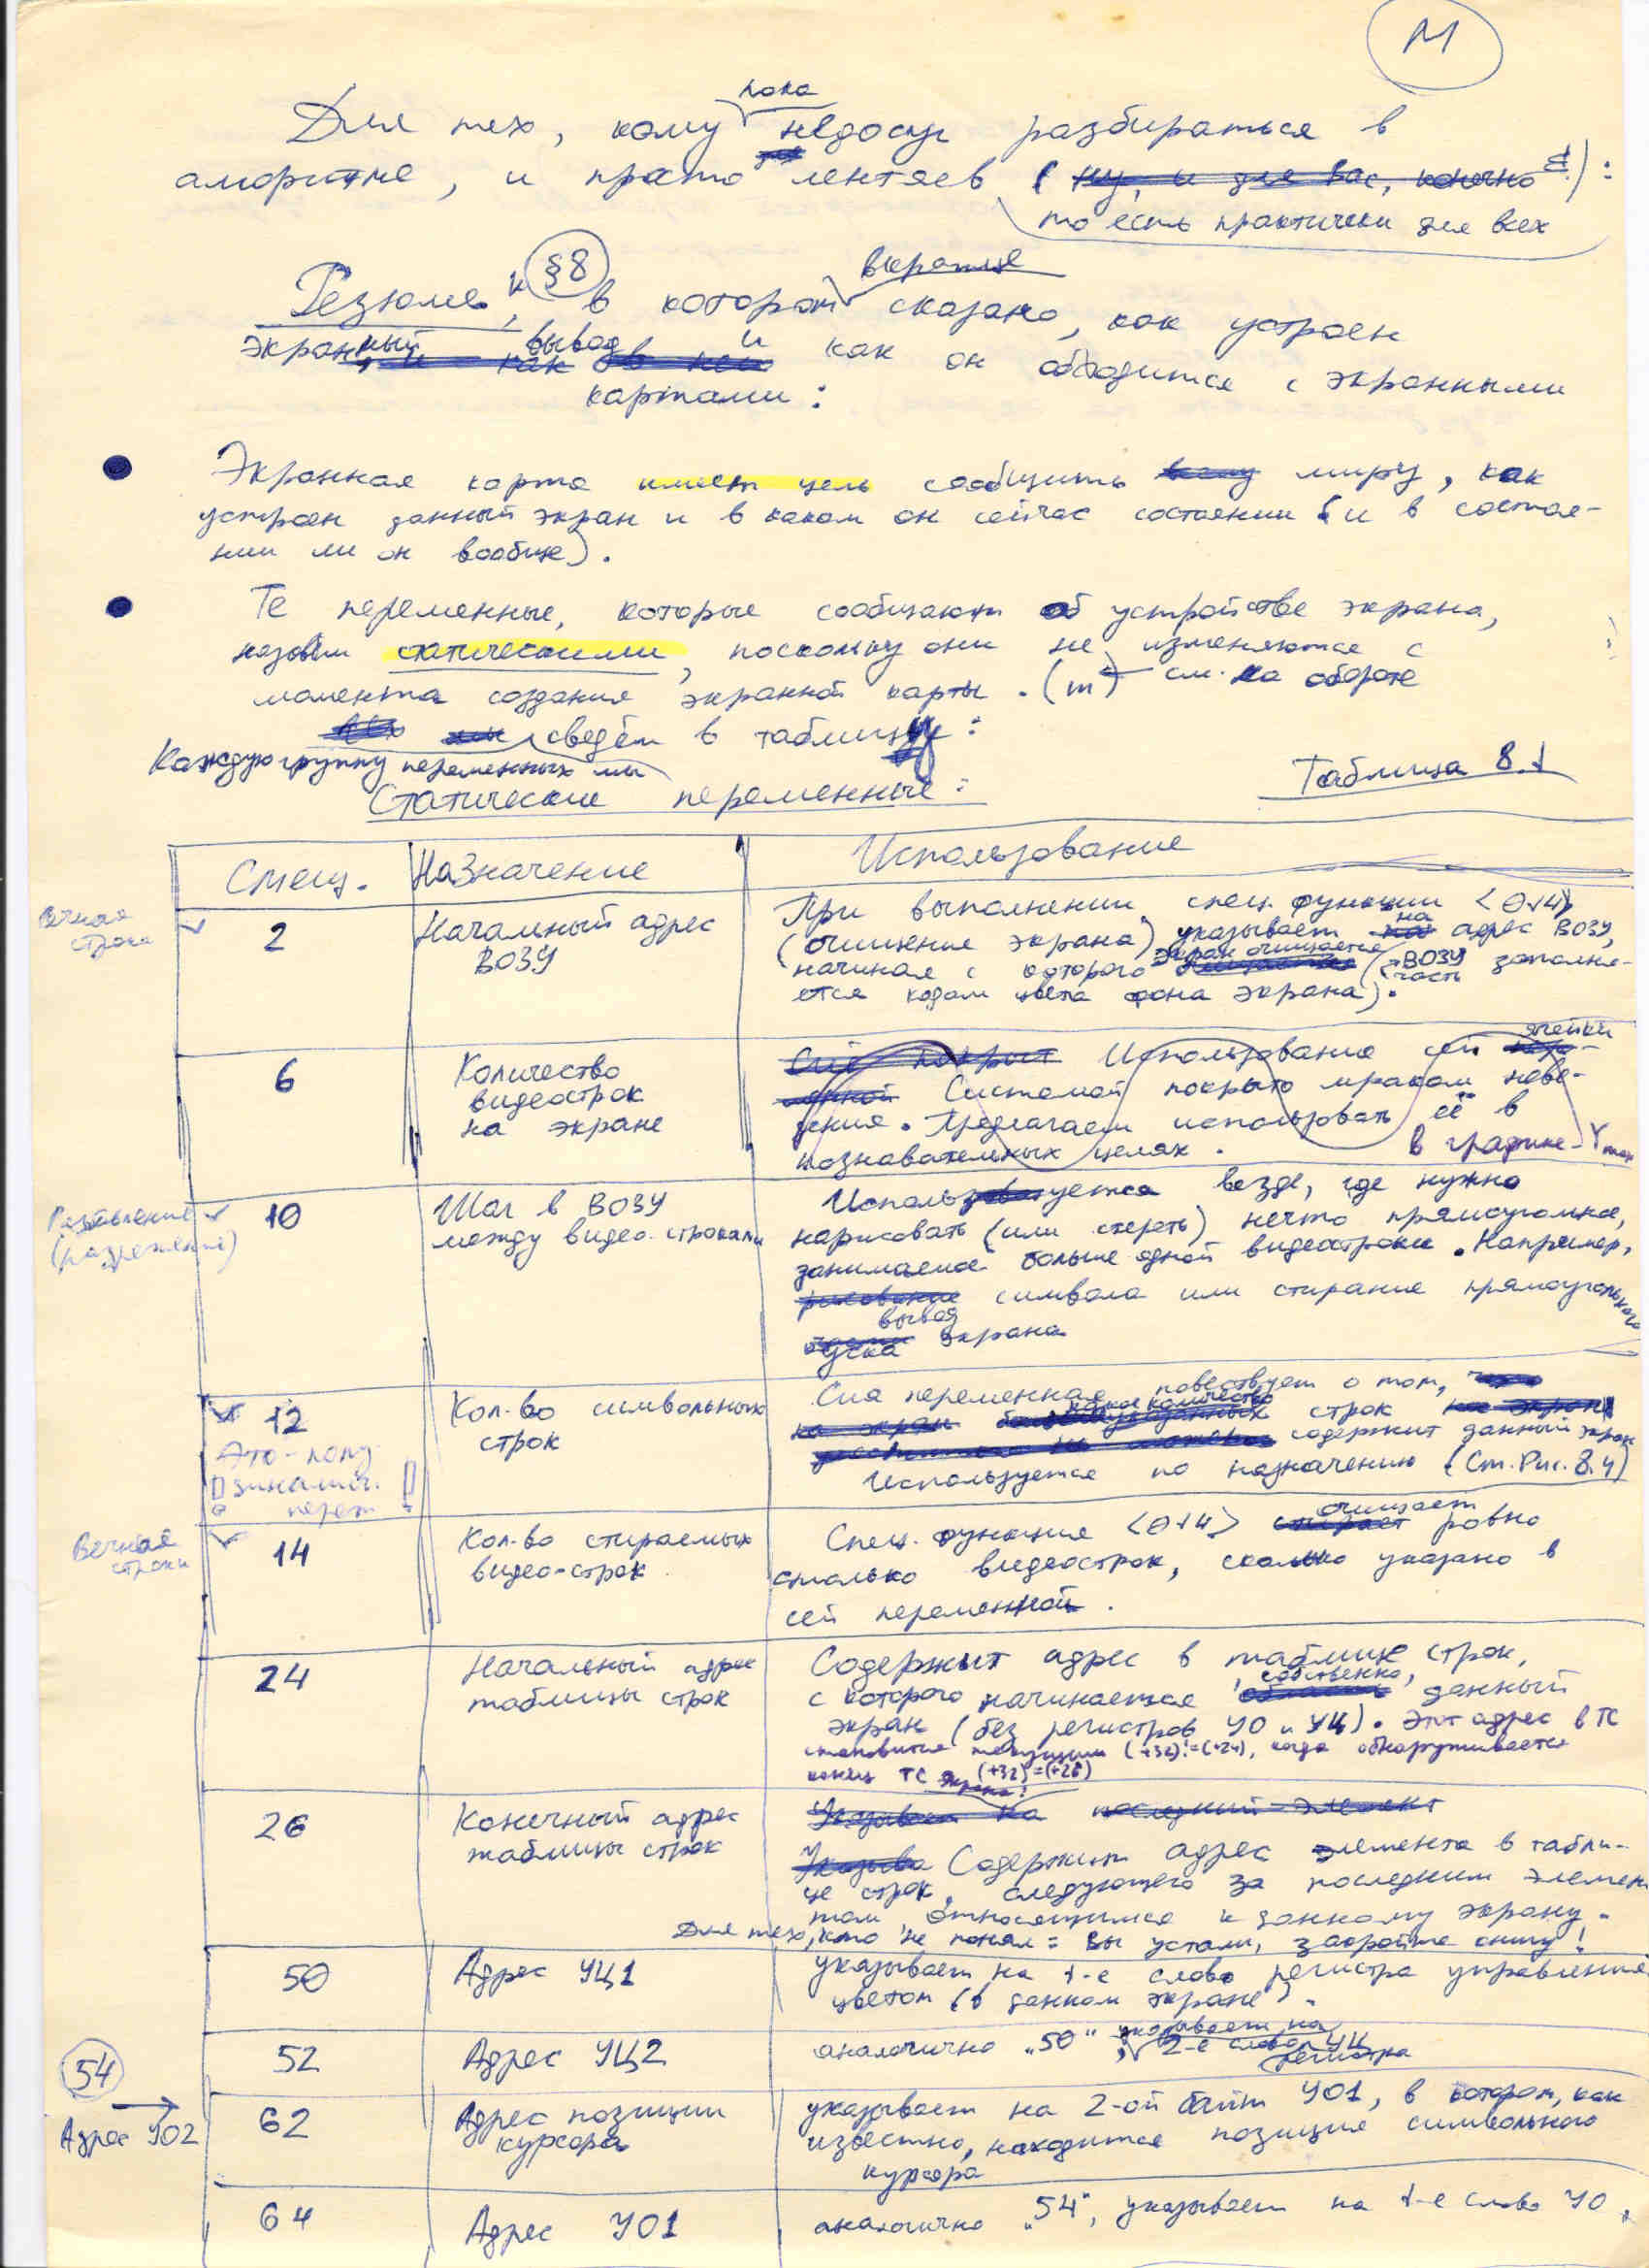 М
пока
Для тех, кому недосуг разбираться в
алгоритме, и просто лентяев (ну, и для вас, конечно):
то есть практически для всех
вкратце
Резюме к §8, в котором сказано, как устроен
экранный вывод и как он обходится с экранными
картами:
Экранная карта имеет цель сообщить всему миру, как
устроен данный экран и в каком он сейчас состоянии (и в состоя-
нии ли он вообще).
Те переменные, которые сообщают об устройстве экрана,
назовём статическими, поскольку они не изменяются с
момента создания экранной карты. (т) см. на обороте
сведём в таблицу:
Каждую группу переменных мы
Таблица 8.1
Статические переменные:
Смещ. Назначение Использование
Вечная строка
2 Начальный адрес ВОЗУ
При выполнении спец. функции <014>
(очищение экрана) указывает на адрес ВОЗУ,
начиная с которого экран очищается (часть ВОЗУ заполня-
ется кодом цвета фона экрана).
6 Количество видеострок на экране
Использование сей ячейки
Системой покрыто мраком неве-
дения. Предлагаем использовать её в
познавательных целях.
в графике - Y max
(разрежение)
10 Шаг в ВОЗУ между видео. строками
Используется везде, где нужно
нарисовать (или стереть) нечто прямоугольное,
занимаемое больше одной видеостроки. Например,
вывод символа или стирание прямоугольного
куска экрана
12 Кол-во символьных строк
Это - полу динамич. перем
Сия переменная повествует о том,
какое количество строк
содержит данный экран
Используется по назначению (См. Рис. 8.4)
Вечная строка
14 Кол-во стираемых видео-строк.
Спец. функция <014> очищает ровно
столько видеострок, сколько указано в
сей переменной.
24 Начальный адрес таблицы строк
Содержит адрес в таблице строк,
с которого начинается, собственно, данный
экран (без регистров УО и УЦ). Этот адрес в ТС
становится текущим (+32):=(+24), когда обнаруживается
конец ТС экрана: (+32)=(+26)
26 Конечный адрес таблицы строк
Указывает на последний элемент
Содержит адрес элемента в табли-
це строк, следующего за последним элемен
том относящимся к данному экрану.
Для тех, кто не понял: Вы устали, закройте книгу!
50 Адрес УЦ1
указывает на 1-е слово регистра управления
цветом (в данном экране).
52 Адрес УЦ2
аналогично „50“, указывает на 2-е слово регистра УЦ
54
Адрес УО2
62 Адрес позиции курсора
указывает на 2-ой байт УО1, в котором, как
известно, находится позиция символьного
курсора
64 Адрес УО1
аналогично „54“, указывает на 1-е слово УО.